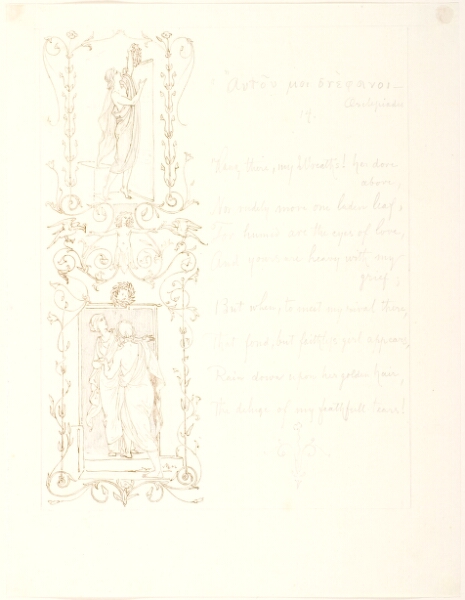 "Αυτου μοι στεφανοι —
Asclepiades
19.
Hang there, my Wreaths! her door
above,
Nor rudely move one laden leaf,
For humid are the eyes of love,
And yours are heavy with my
grief,
But when, to meet my rival there,
That fond, but faithless girl appears,
Rain down upon his golden hair,
The deluge of my faithfull tears!